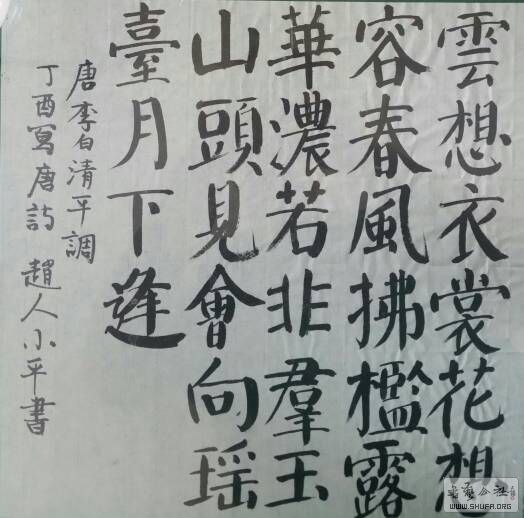 雲想衣裳花想
容春風拂檻露
華濃若非羣玉
山頭見會向瑶
臺月下逢
唐李白清平調
丁酉寫唐詩 趙人小平書
WWW.SHUFA.ORG